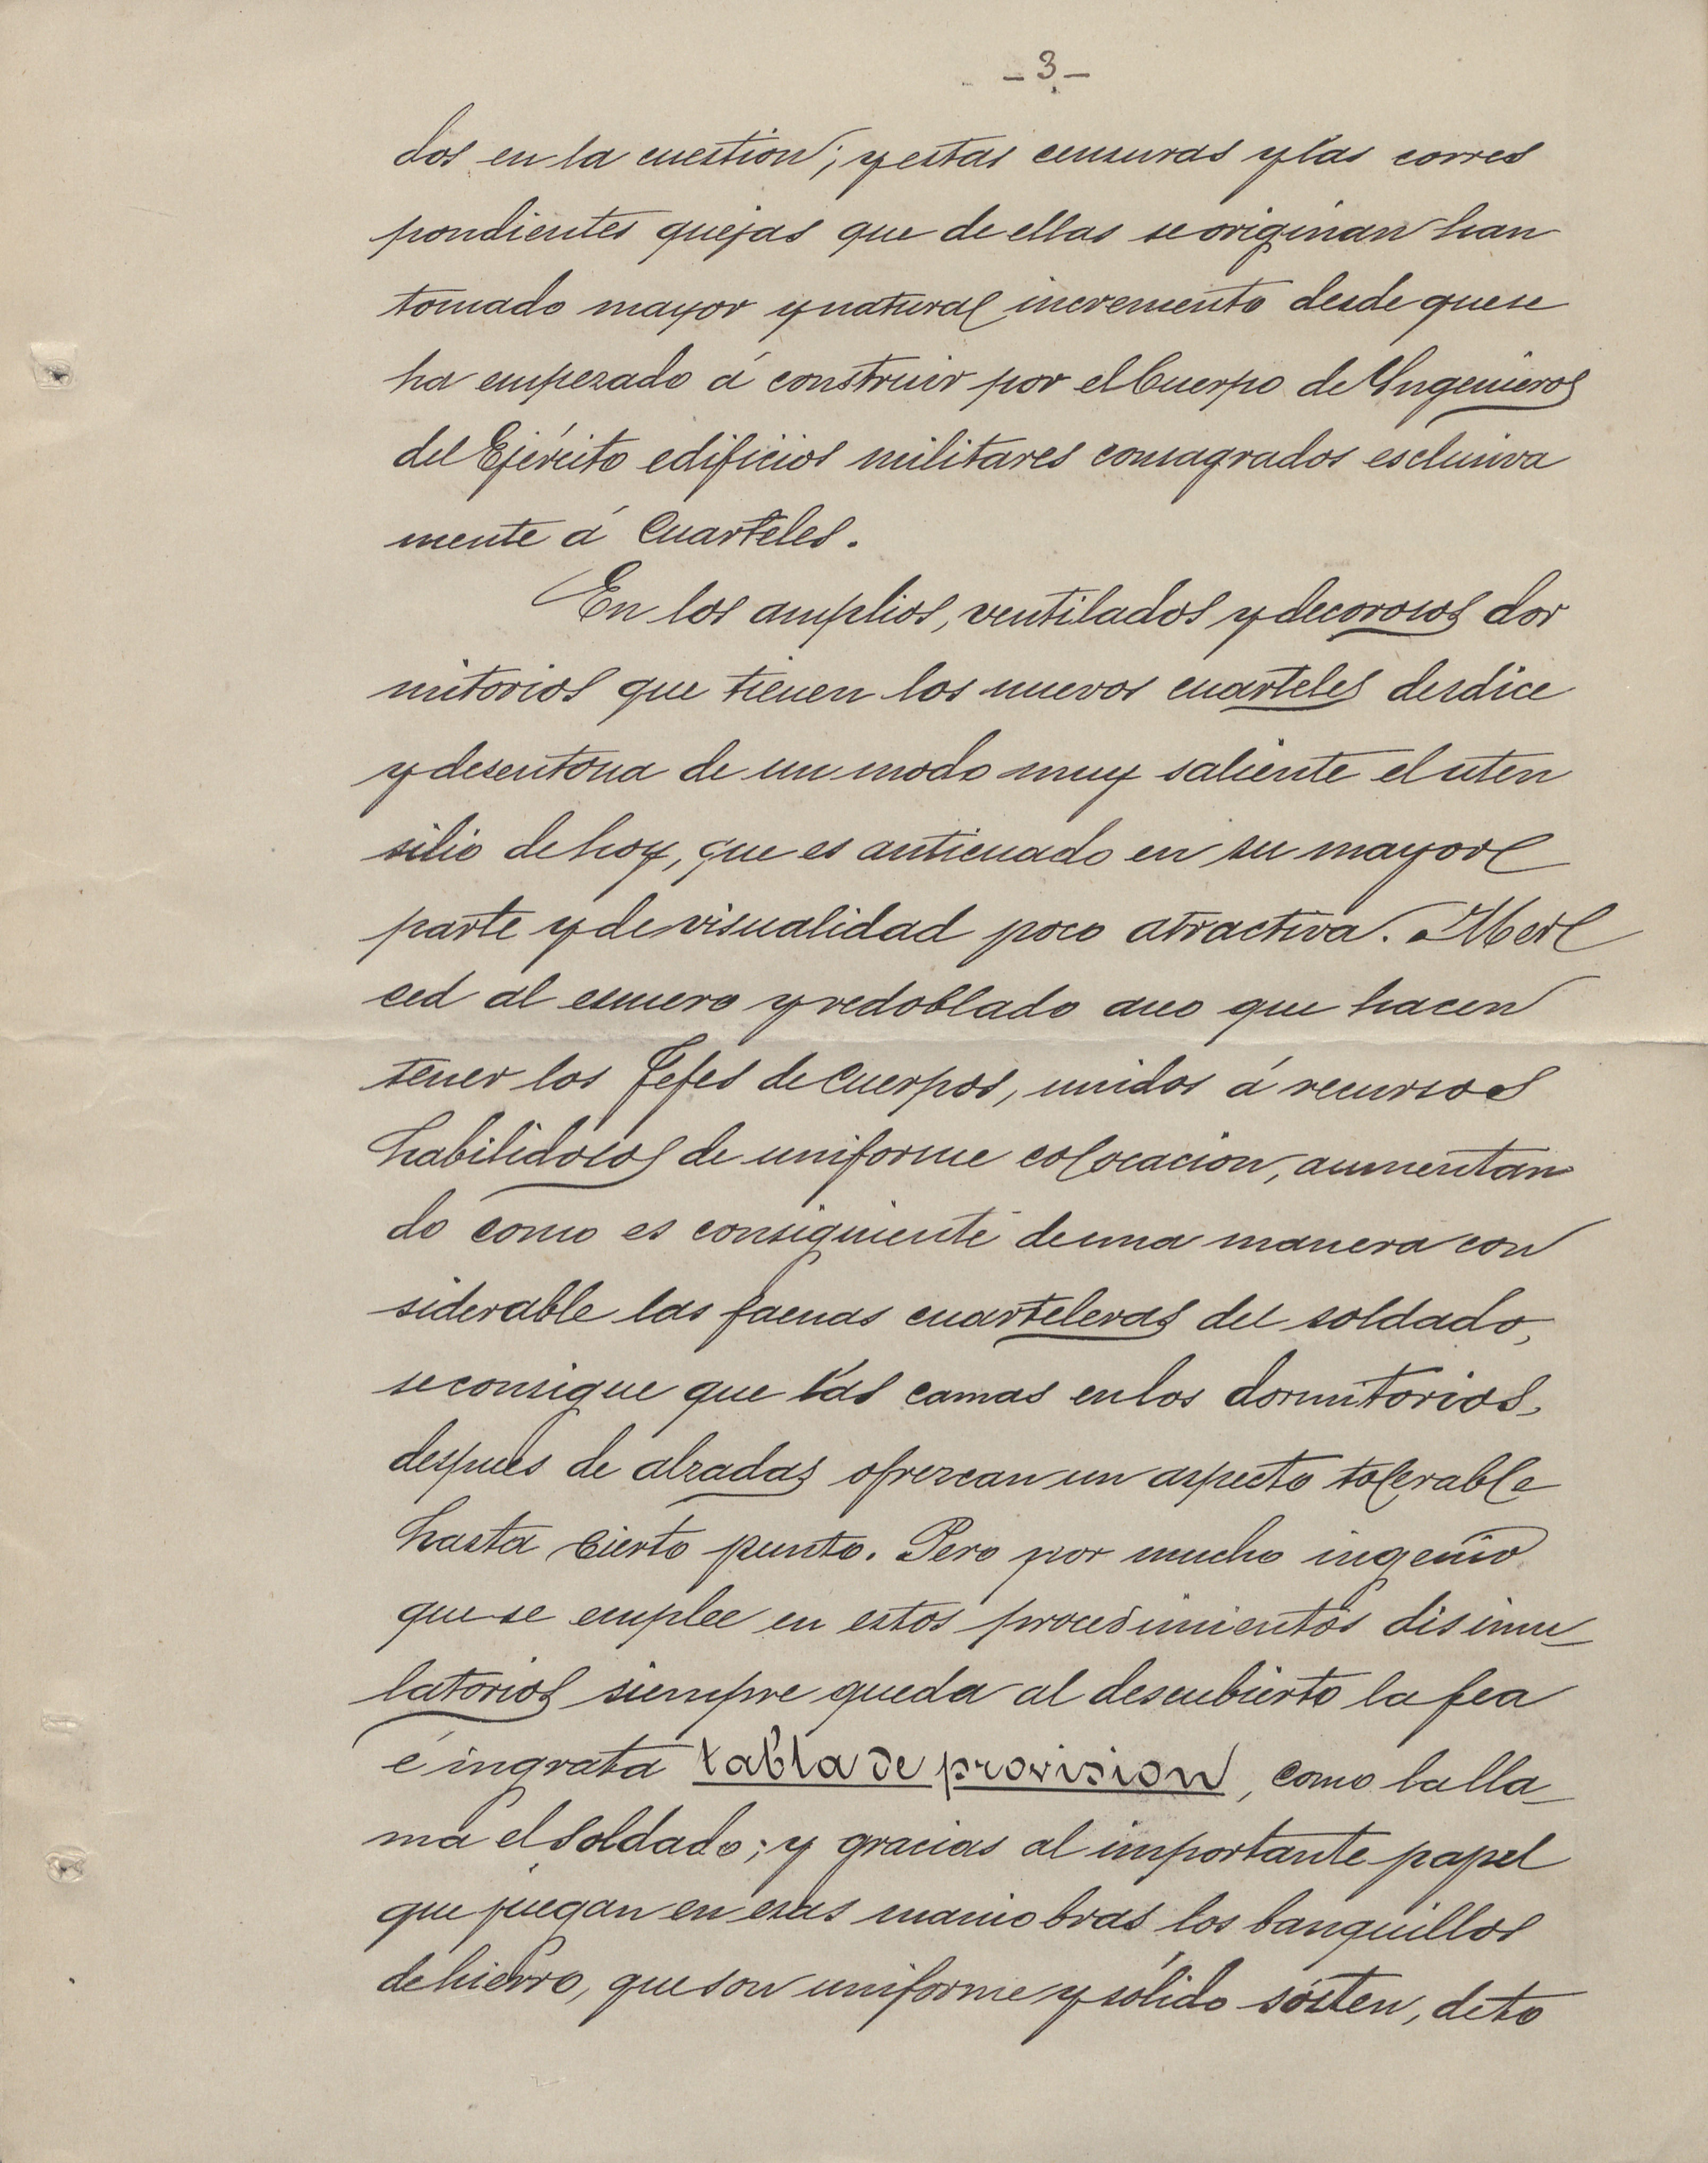 - 3 -
dos en la cuestion; y estas censuras y las corres
pondientes quejas que de ellas se originan han
tomado mayor y natural incremento desde que se
ha empezado á construir por el Cuerpo de Ingenieros
del Ejército edificios militares consagrados esclusiva
mente á Cuarteles.
En los amplios, ventilados y decorosos dor
mitorios que tienen los nuevos cuarteles desdice
y desentona de un modo muy saliente el uten
silio de hoy, que es anticuado en su mayor
parte y de visualidad poco atractiva. Mer
ced al esmero y redoblado aseo que hacen
tener los Jefes de Cuerpos, unidos á recursos
habilidosos de uniforme colocacion, aumentan
do como es consiguiente de una manera con
siderable las faenas cuarteleras del soldado,
se consigue que las camas en los dormitorios,
despues de alzadas ofrezcan un aspecto tolerable
hasta cierto punto. Pero por mucho ingenio
que se emplee en estos procedimientos disimu_
latorios siempre queda al descubierto la fea
é ingrata tabla de provision, como la lla_
ma el soldado; y gracias al importante papel
que juegan en esas maniobras los banquillos
de hierro, que son uniforme y sólido sósten, de to